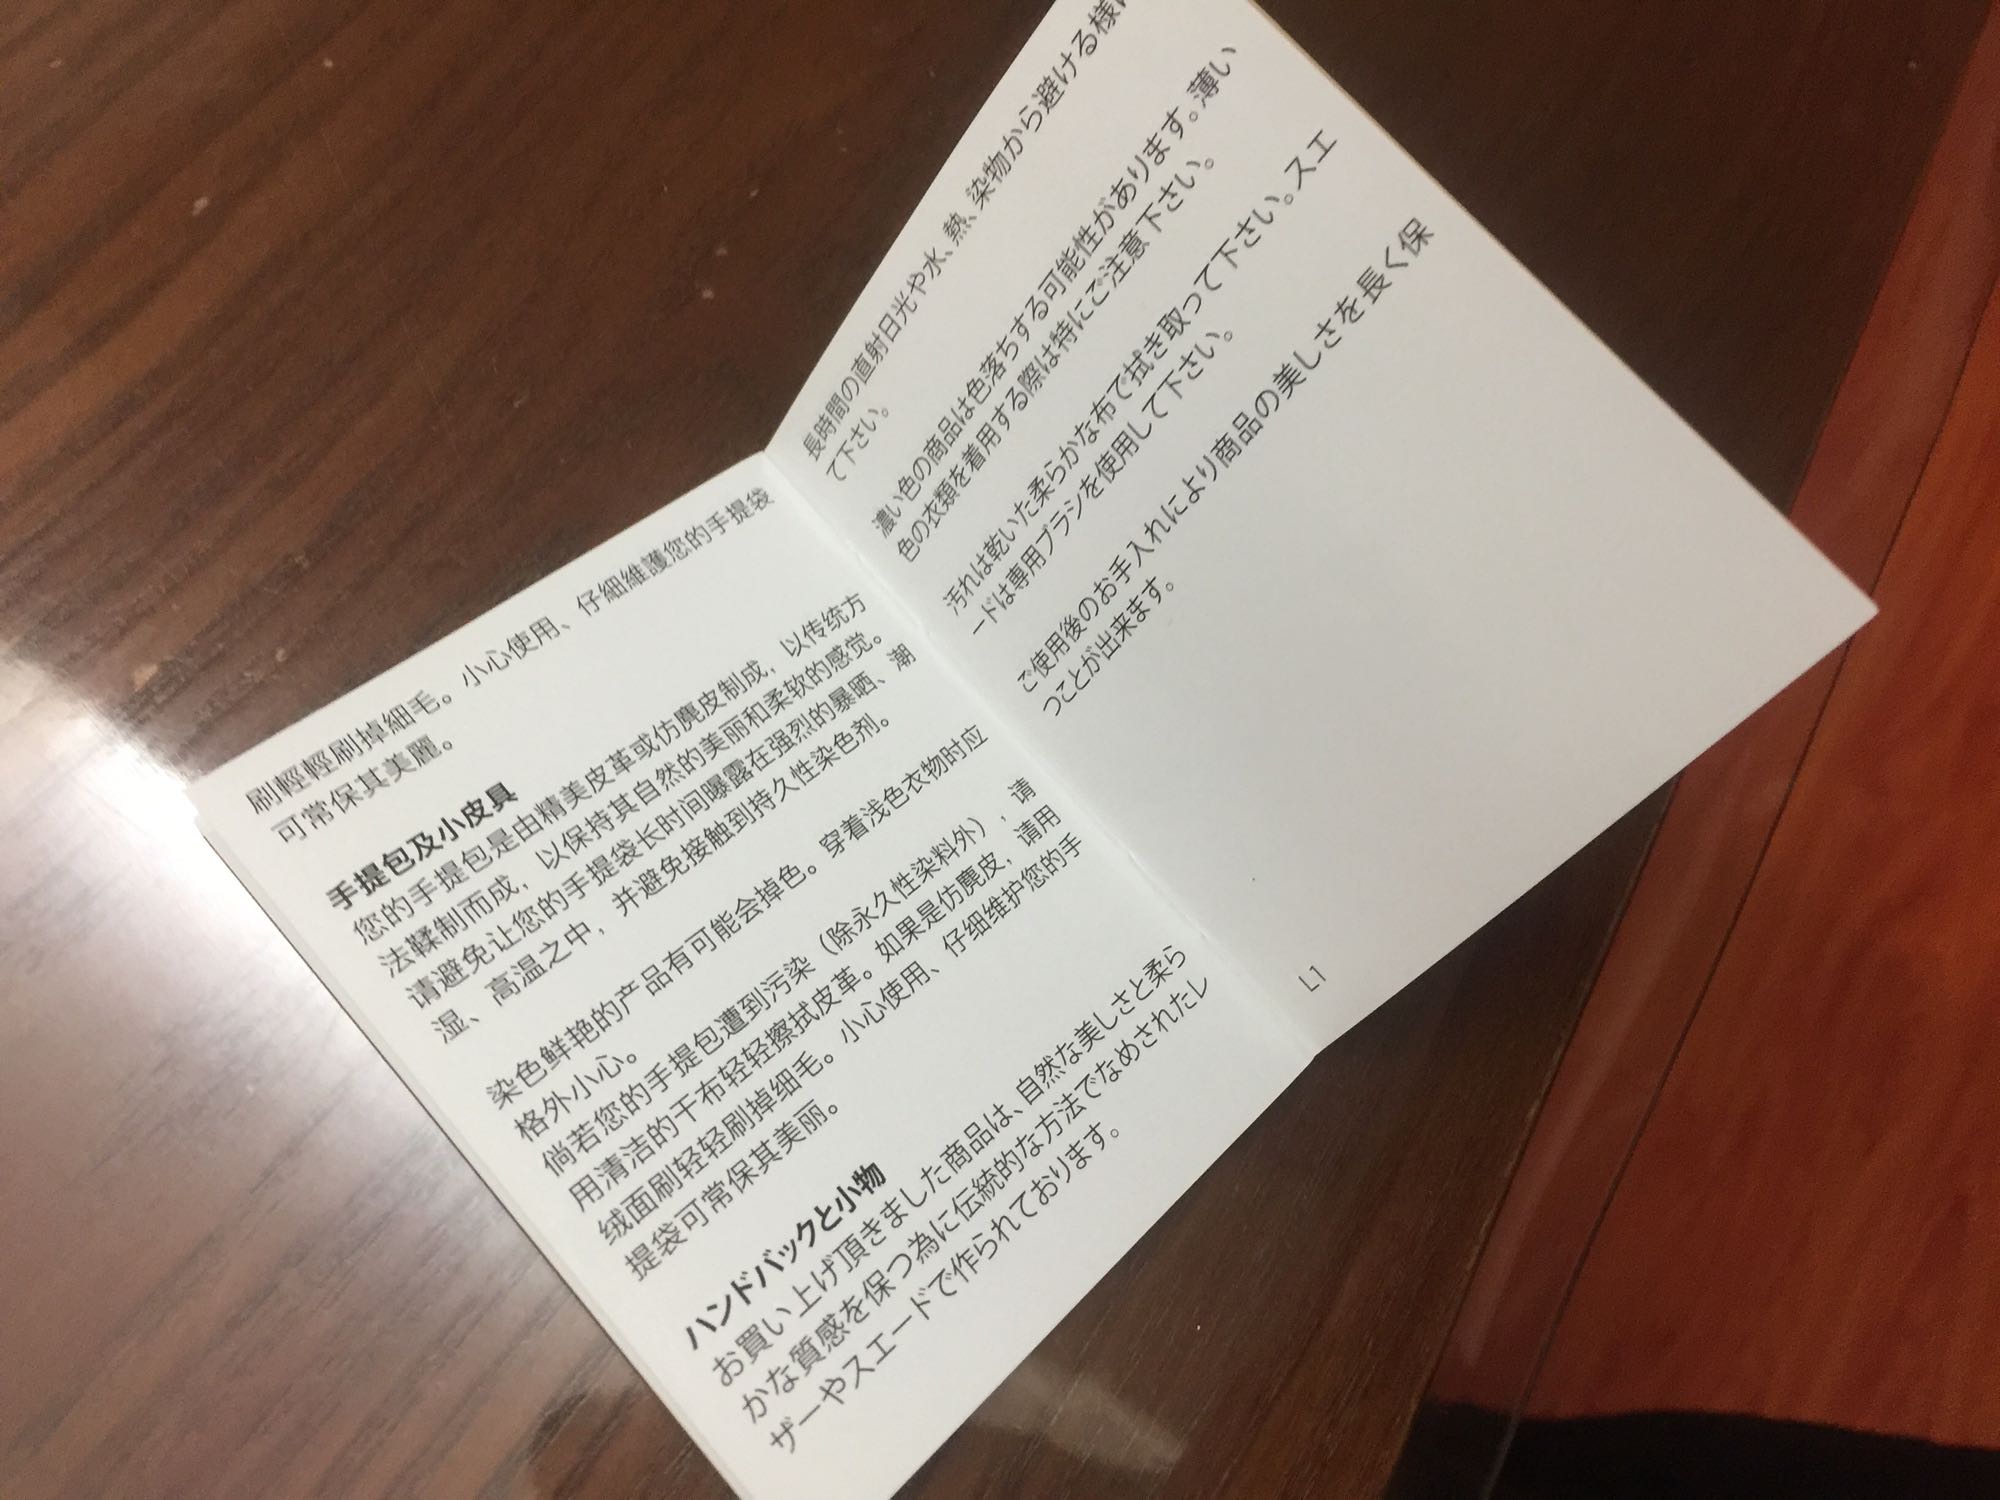 刷輕輕刷掉細毛。小心使用、仔細維護您的手提袋
可常保其美麗。
手提包及小皮具
您的手提包是由精美皮革或仿麂皮制成，以传统方
法鞣制而成，以保持其自然的美丽和柔软的感觉。
请避免让您的手提袋长时间曝露在强烈的暴晒、潮
湿、高温之中，并避免接触到持久性染色剂。
染色鲜艳的产品有可能会掉色。穿着浅色衣物时应
格外小心。
倘若您的手提包遭到污染（除永久性染料外），请
用清洁的干布轻轻擦拭皮革。如果是仿麂皮，请用
绒面刷轻轻刷掉细毛。小心使用、仔细维护您的手
提袋可常保其美丽。
ハンドバックと小物
お買い上げ頂きました商品は、自然な美しさと柔ら
かな質感を保つ為に伝統的な方法でなめされたレ
ザーやスエードで作られております。
長時間の直射日光や水、熱、染物から避ける様に
て下さい。
濃い色の商品は色落ちする可能性があります。薄い
色の衣類を着用する際は特にご注意下さい。
汚れは乾いた柔らかな布で拭き取って下さい。スエ
ードは専用ブラシを使用して下さい。
ご使用後のお手入れにより商品の美しさを長く保
つことが出来ます。
L1